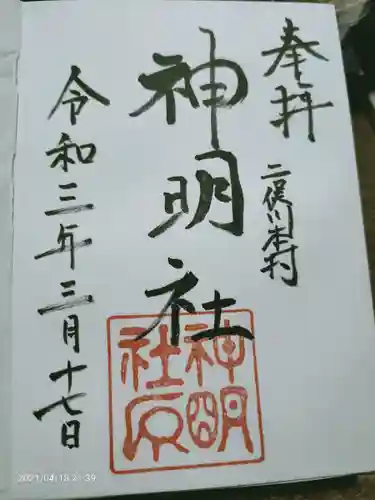 奉拝
二俣川本村
神明社
令和三年三月十七日
神明
社
2021/04/18 21:39